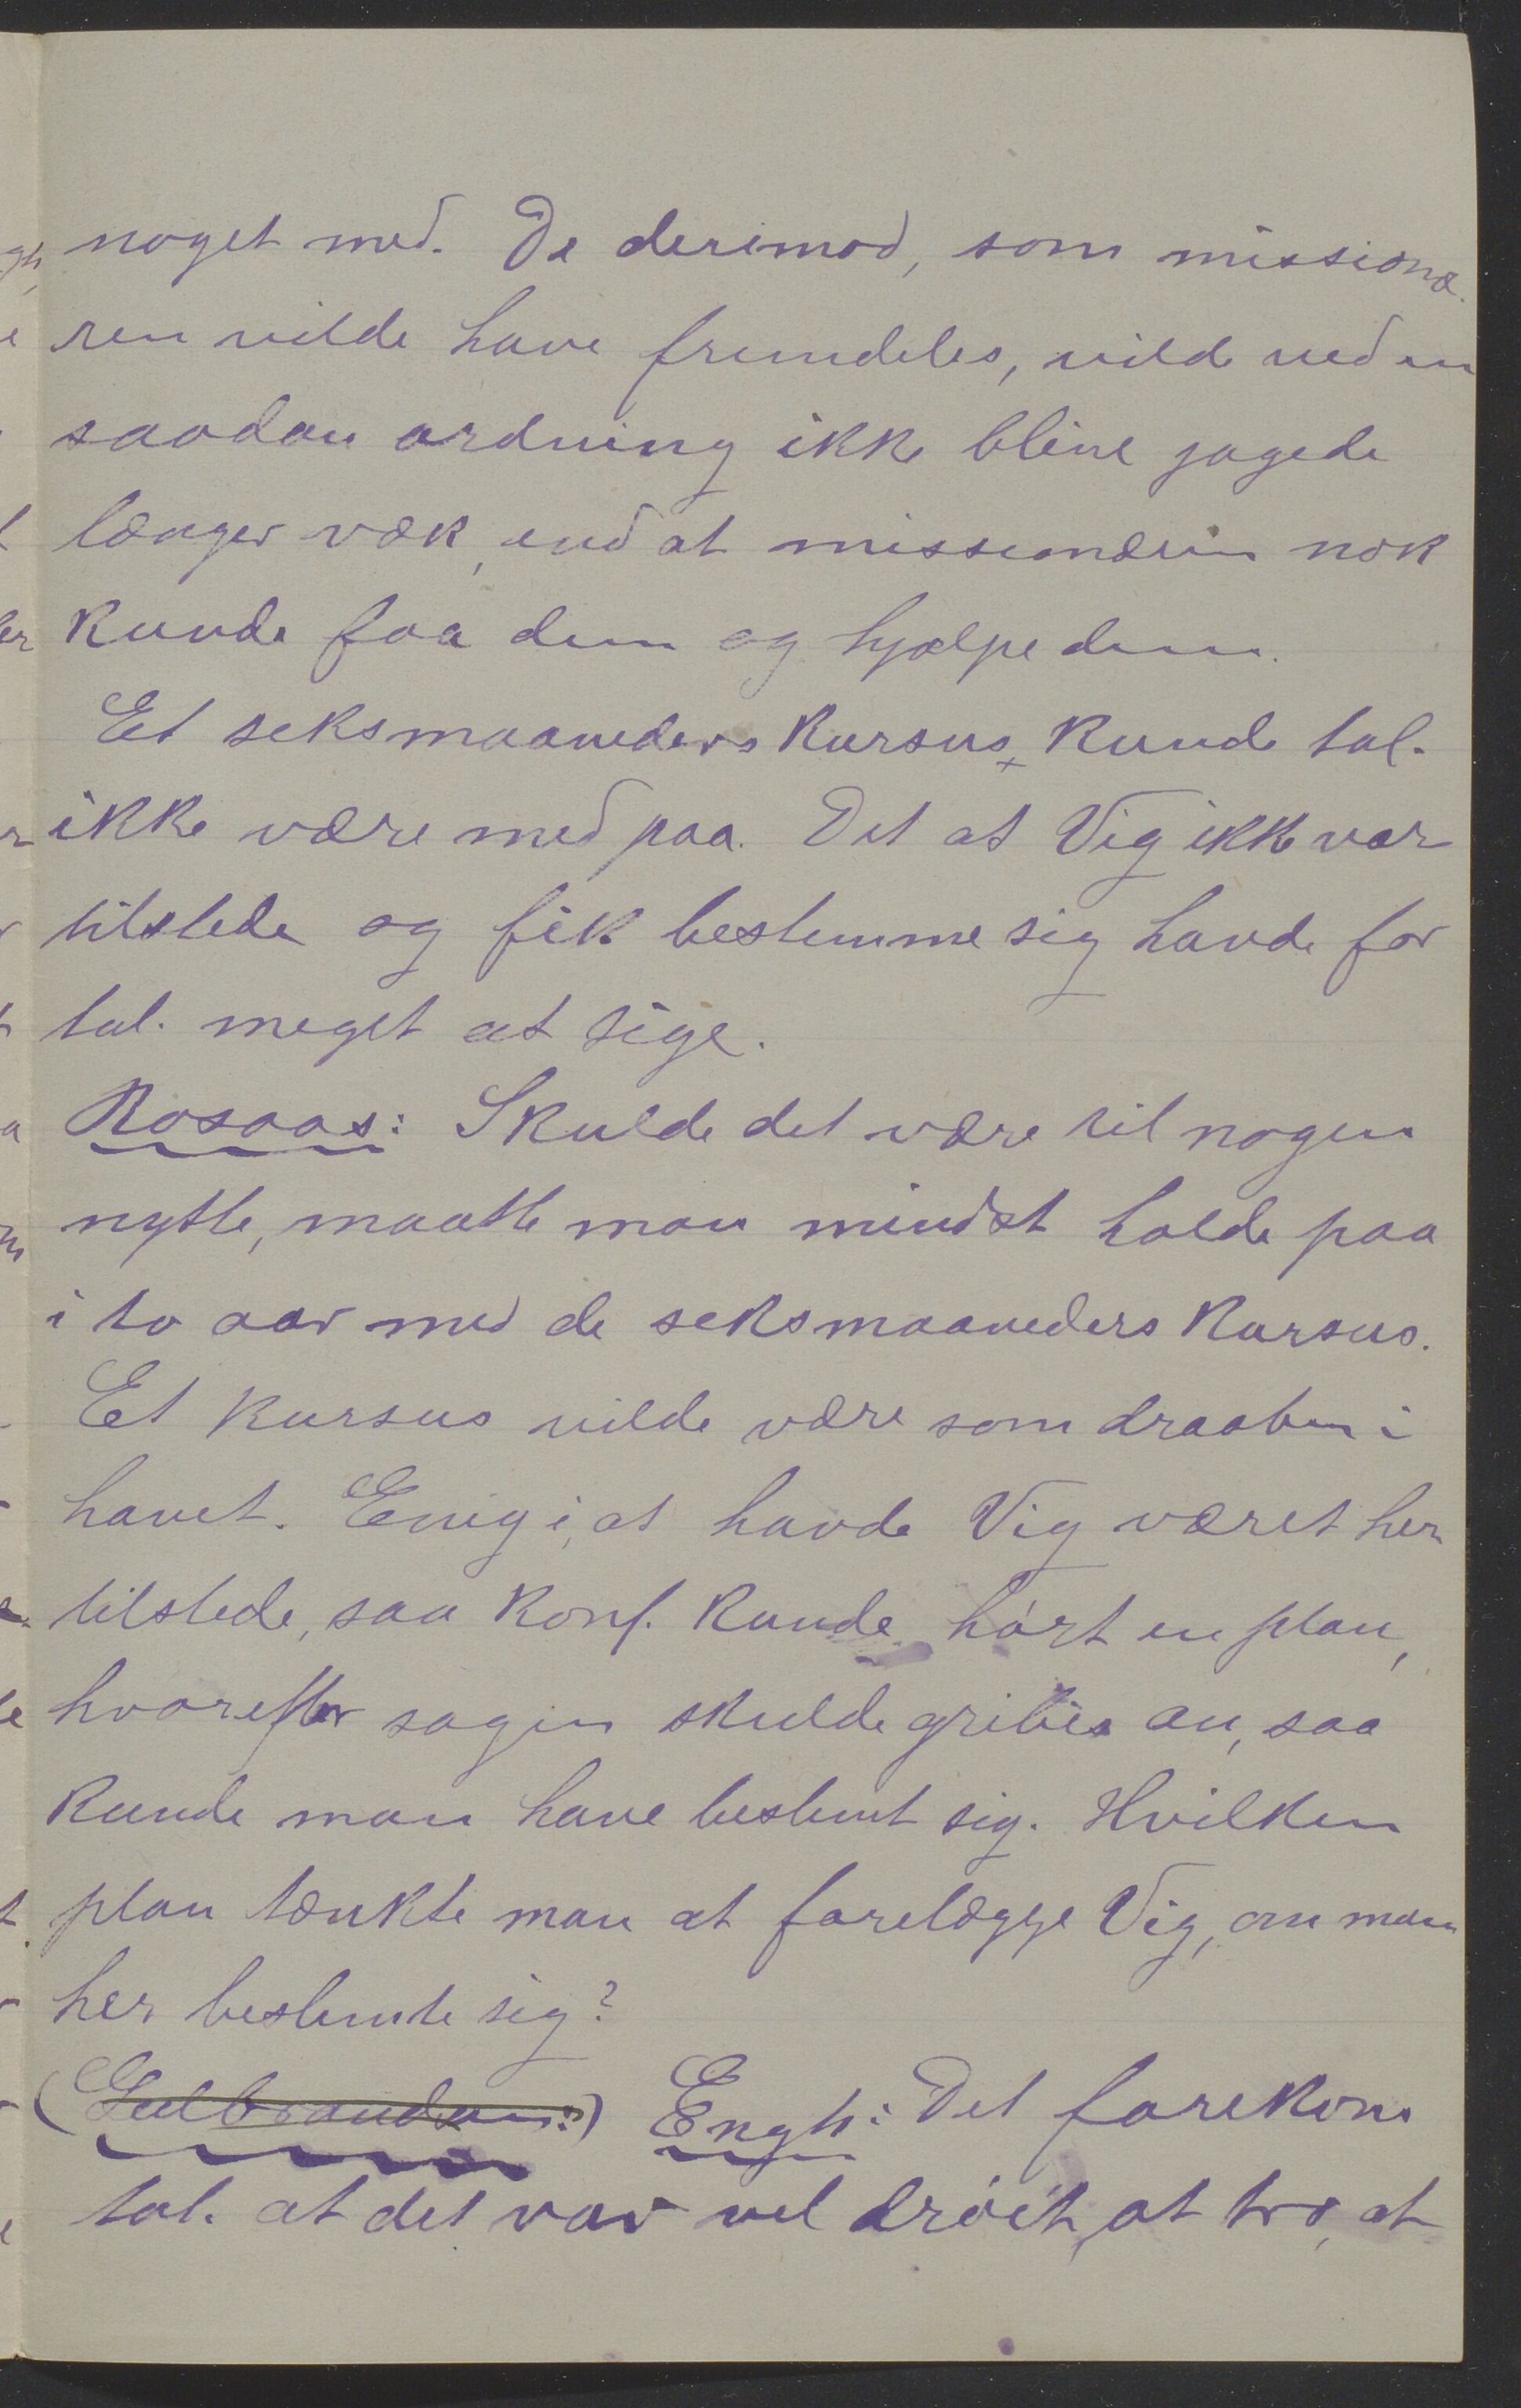 noget med. De derimod, som missionæ-
ren vilde have fremdeles, vilde ved en
saadan ordning ikke blive jagede
længer væk, end at missionæren nok
kunde faa dem og hjælpe dem.
Et seksmaaneders kursus kunde tal.
ikke være med paa. Det at Vig ikke var
tilstede og fik bestemme sig havde for
tal. meget at sige.
Rosaas: Skulde det være til nogen
nytte, maatte man mindst holde paa
i to aar med de seksmaaneders kursus.
Et kursus vilde være som draaben i
havet. Enig i, at havde Vig været her
tilstede, saa konf. kunde hørt en plan,
hvorefter sagen skulde gribes an, saa
kunde man have bestemt sig. Hvilken
plan tænkte man at forelægge Vig, om man
her bestemte sig?
(Gulbrandsen:) Engh: Det forekom
tal. at det var vel drøit, at tro, at